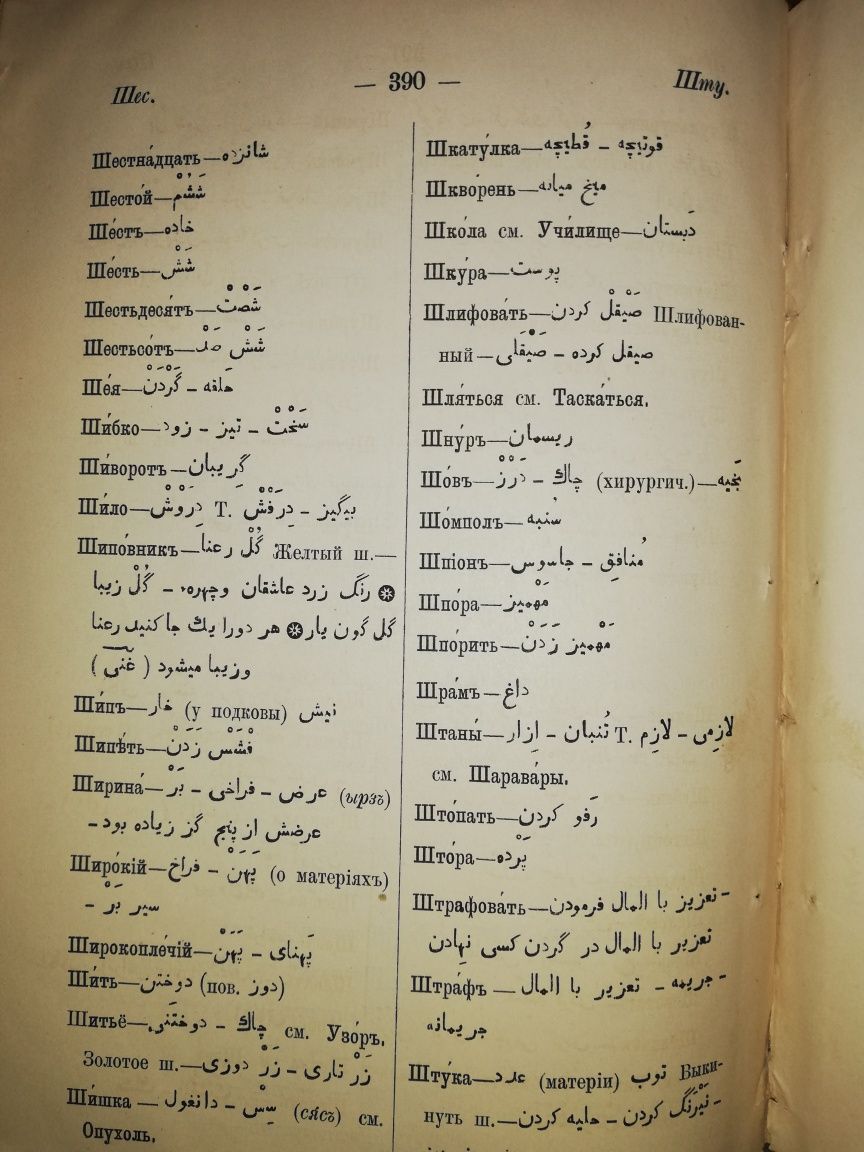 Шес. — 390 — Шту.
Шестна́дцать—شانزده
Шесто́й—شَشُمْ
Ше́стъ—خاده
Ше́сть—شَشْ
Шестьдеся́тъ—شَصْتْ
Шестьсо́тъ—شَشْ صَدْ
Ше́я—گَرْدَنْ - حلقه
Ши́бко—سَخْتْ - تیز - زود
Ши́воротъ—گرِیبان
Ши́ло—دِرَوْشْ Т. دِرَفْشْ - بیگیز
Шипо́вникъ—گُلْ رعنا Желтый ш.—
گُلْ زیبا - رنگ زرد عاشقان وچهرهء
گل گون یار هر دورا یك جا کنید رعنا
وزیبا میشود ( غنی )
Ши́пъ—خار (у подковы) نیش
Шипѣ́ть—فَشَسْ زَدَنْ
Ширина́—عرض - فراخی - بَرْ (ырзъ)
عرضش از پنج گز زیاده بود -
Широ́кій—پَهَنْ - فراخ (о матеріяхъ)
سیر بَرْ -
Широкопле́чій—پَهَنْ - پَهنای
Ши́ть—دوختن (пов. دوز)
Шитьё—دوختَنِی - چاك см. Узо́ръ.
Золотое ш.—زَرْ تاری - زَرْ دوزی
Ши́шка—سِسْ - دانغول (сясъ) см.
Опухоль.
Шкату́лка—قوتیچه - قُطیچه
Шкво́рень—میخ میانه
Шко́ла см. Учи́лище—دَبستان
Шку́ра—پوست
Шлифова́ть—صَیْقَلْ کردن Шлифован-
ный—صیقل کرده - صَیْقَلی
Шля́ться см. Таска́ться.
Шну́ръ—ریسمان
Шо́въ—چاك - دَرْزْ (хирургич.)—بَخیه
Шо́мполъ—سنبه
Шпіонъ—مُنافِق - جاسوس
Шпо́ра—مَهْمیز
Шпо́рить—مَهْمیز زَدَنْ
Шра́мъ—داغ
Штаны́—تُنبان - اِزار Т. لازِمی - لازِم
см. Шарава́ры.
Што́пать—رَفو کردن
Што́ра—پَرْده
Штрафова́ть—تعزیر با المال فرمودن -
تعزیر با المال در گردن کسی نهادن
Штра́фъ—جریمه - تعزیر با المال -
جریمانه
Шту́ка—عدد (матеріи) توپ Выки-
нуть ш.—نَیْرَنگ کردن - حلیه کردن -